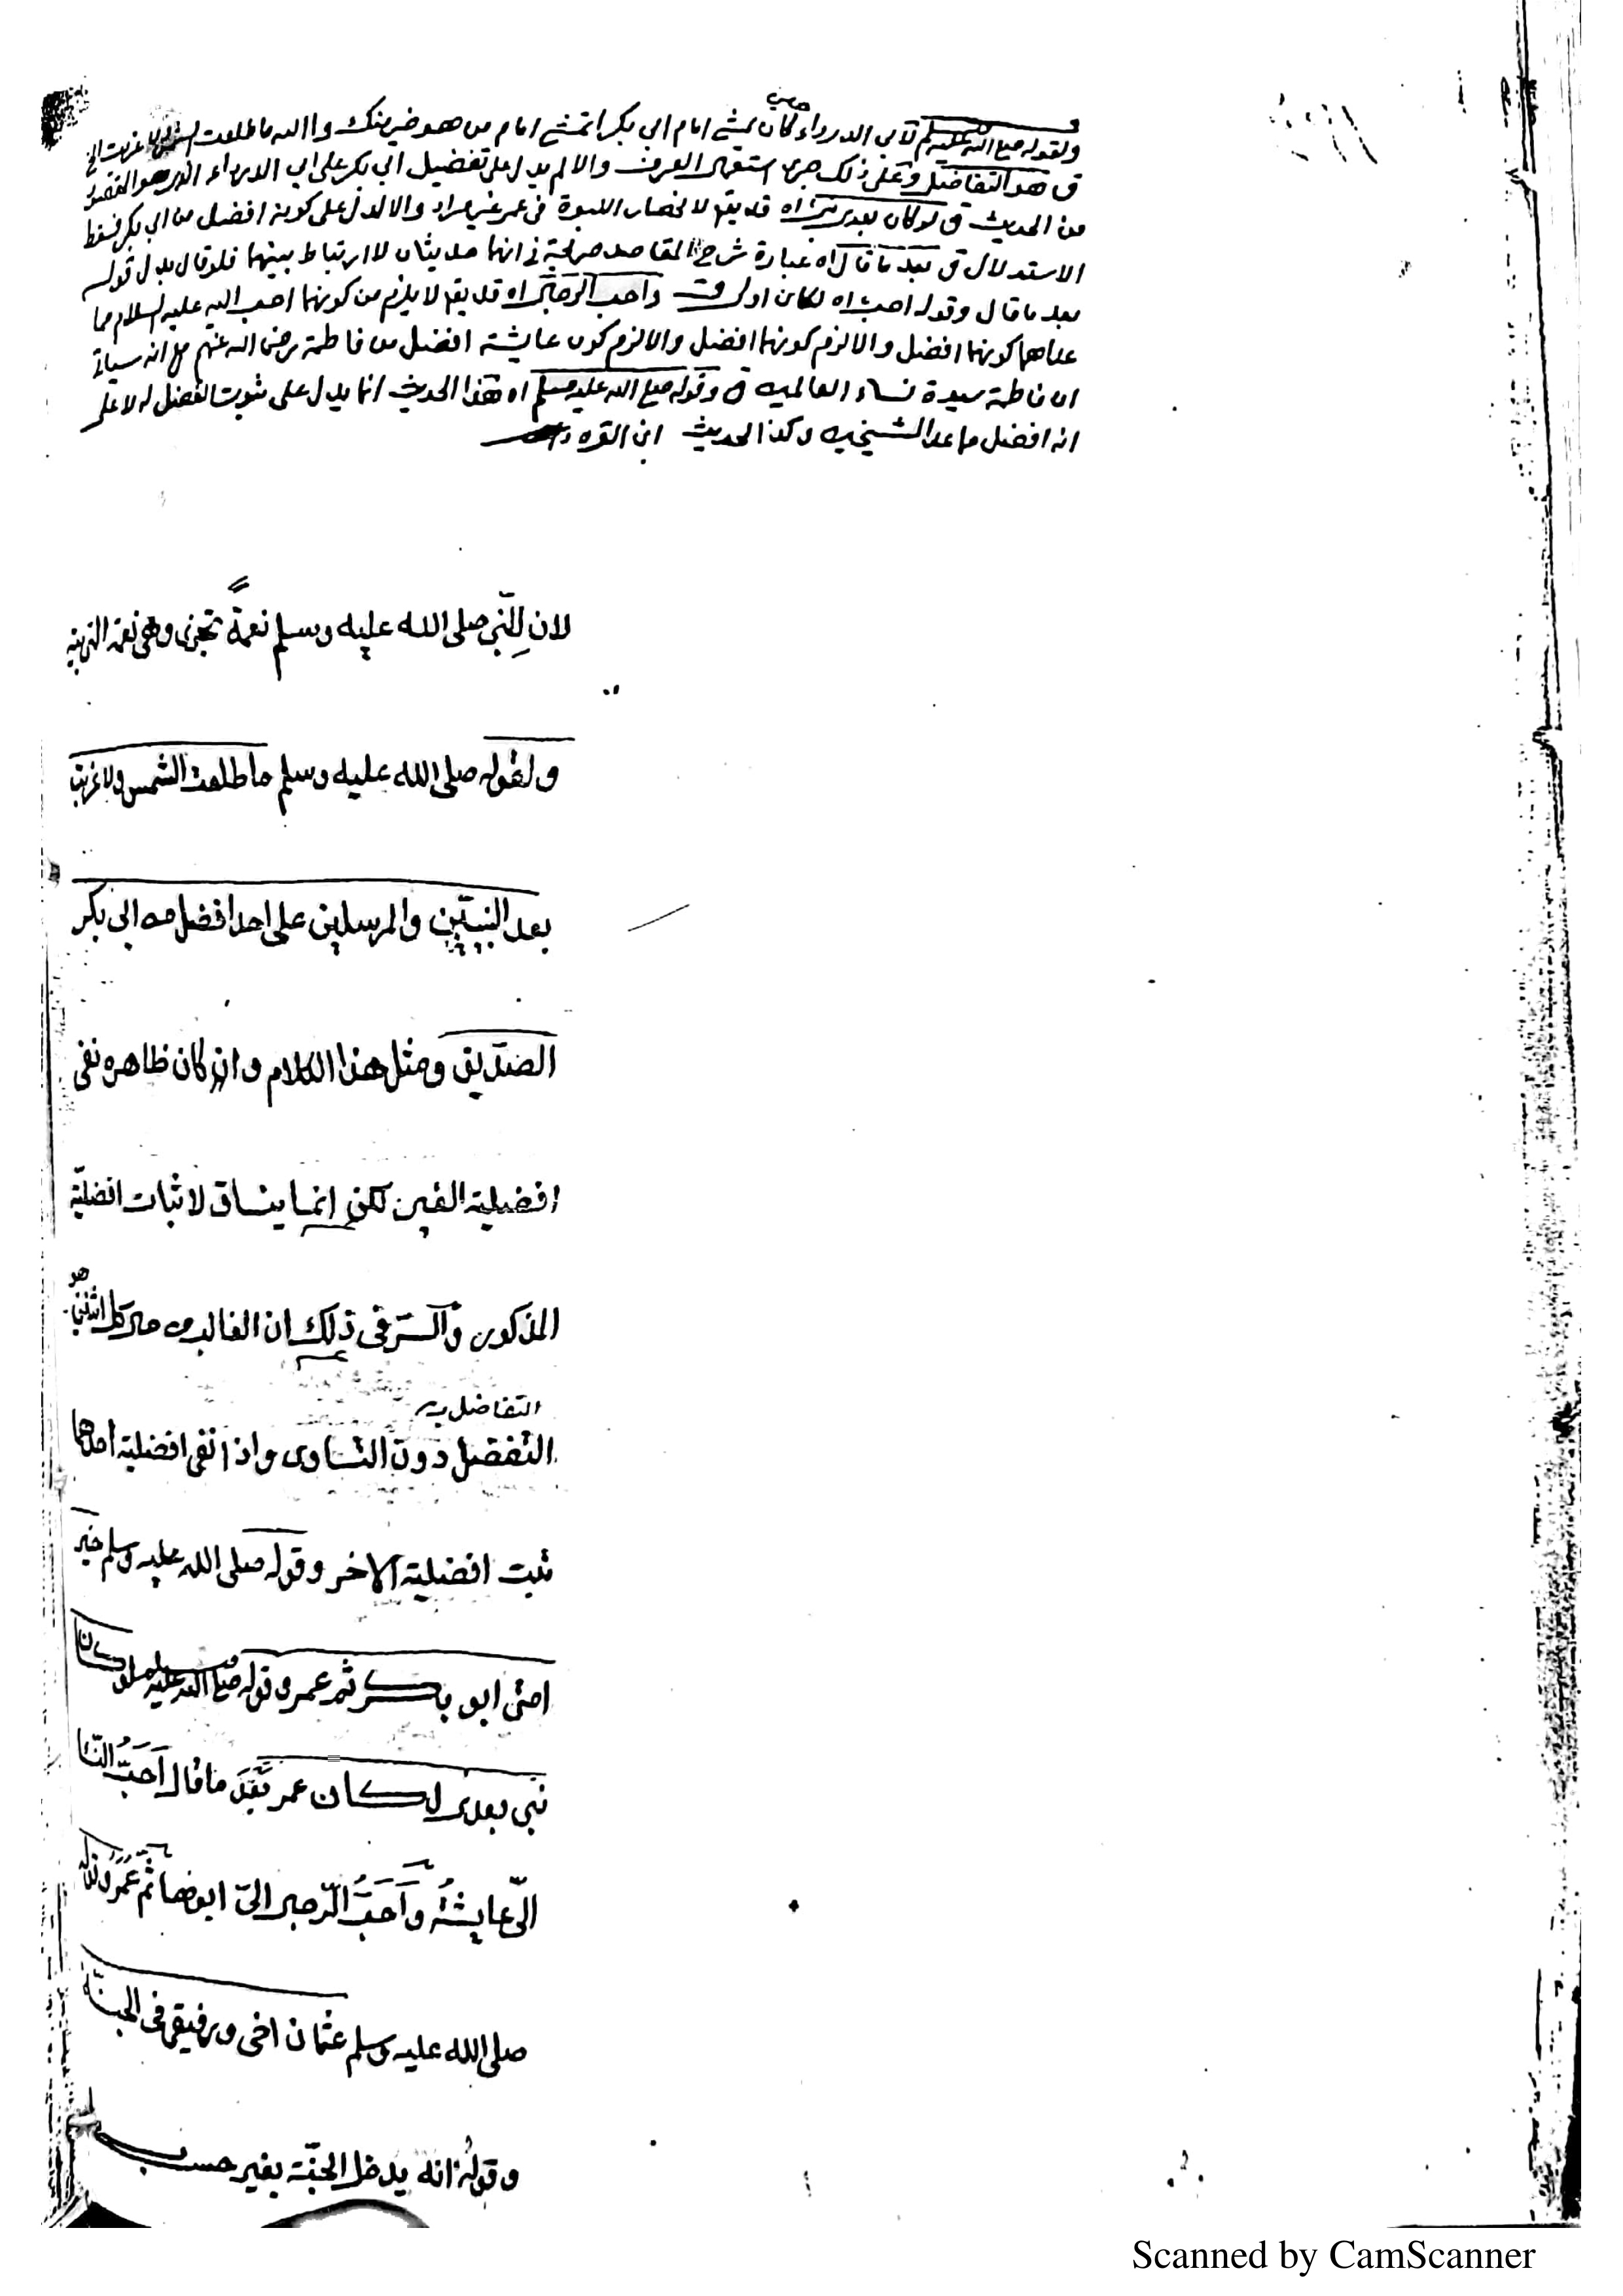 ولقوله صلع الله عليه وسلم لابي الدرداء حين كان يمشي امام ابي بكر اتمشي امام من هو خير منك والله ما طلعت الشمس ولا غربت الخ
ق هو التفاضل وعلى ذلك جرى استعمال العرف والا لم يدل على تفضيل ابي بكر على ابي الدرداء الذي هو المقصود
من الحديث ق لو كان بعدى نبى اه قد يقع لا انحصار النبوة فى عمر غير مراد والا لدل على كونه افضل من ابي بكر فسقط
الاستدلال ق بعد ما قال اه عبارة شرح المقاصد صريحة في انهما حديثان لا ارتباط بينهما فلو قال بدل قوله
بعد ما قال وقوله احب اه لكان اولى ق واحب الرجال اه قد يقع لا يلزم من كونهما احب اليه عليه السلام مما
عداهما كونهما افضل والا لزم كونهما افضل والا لزم كون عايشة افضل من فاطمة رضى الله عنهم مع انه سياتي
ان فاطمة سيدة نساء العالمين ق وقوله صلع الله عليه وسلم اه هذا الحديث انما يدل على ثبوت الفضل له لا على
انه افضل ما عدا الشيخين وكذا الحديث ابن القره داغى
لان للنّبي صلى الله عليه وسلم نعمةً تجزى وهى نعمة التربية
ولقوله صلى الله عليه وسلم ما طلعت الشمس ولا غربت
بعد النبيّين والمرسلين على احد افضل من ابى بكر
الصدّيق ومثل هذا الكلام وان كان ظاهره نفى
افضلية الغير لكن انما ينساق لاثبات افضليّة
المذكور والسّر فى ذلك ان الغالب من حال كل اثنين هو
التفاضل
التفضل دون التساوى واذا نفى افضلية احدهما
ثبت افضلية الاخر وقوله صلى الله عليه وسلم خير
امتى ابو بكر ثم عمر وقوله صلع الله عليه وسلم لو كان
نبى بعدى لكان عمر بَعْدَ ما قال اَحَبُّ النّسا
الىّ عايشةُ واَحَبُّ الرّجال الىّ ابوها ثم عُمَرُ وقوله
صلى الله عليه وسلم عثمان اخى ورفيقى فى الجنّة
وقوله انه يدخل الجنّة بغير حساب
Scanned by CamScanner